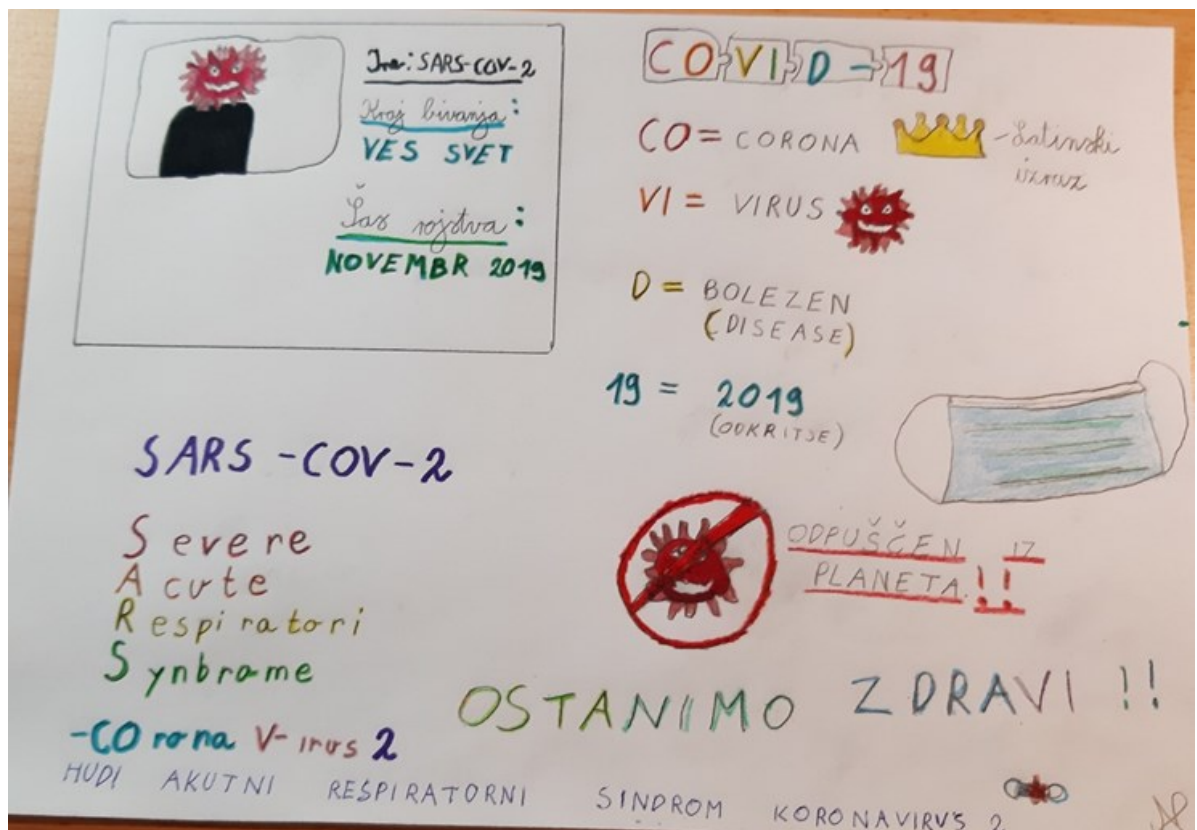 Ime: SARS-COV-2
Kraj bivanja:
VES SVET
Čas rojstva:
NOVEMBR 2019
COVID-19
CO = CORONA - Latinski
izraz
VI = VIRUS
D = BOLEZEN
(DISEASE)
19 = 2019
(ODKRITJE)
SARS-COV-2
Severe
Acute
Respiratori
Synbrome
-COrona V-irus 2
ODPUŠČEN IZ
PLANETA!!
OSTANIMO ZDRAVI!!
HUDI AKUTNI RESPIRATORNI SINDROM KORONAVIRUS 2